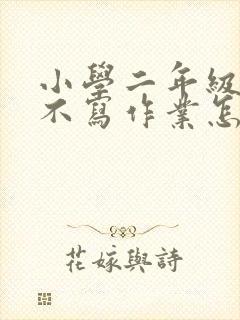 小學二年級
不寫作業怎
花嫁與詩